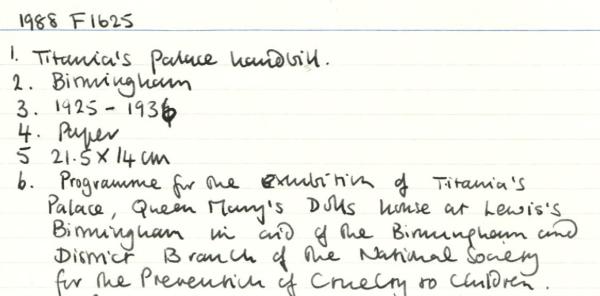 1988 F1625
1. Titania's Palace handbill.
2. Birmingham
3. 1925 - 1936
4. Paper
5 21.5 x 14 cm
6. Programme for the exhibition of Titania's
Palace, Queen Mary's Dolls house at Lewis's
Birmingham in aid of the Birmingham and
District Branch of the National Society
for the Prevention of Cruelty to Children.